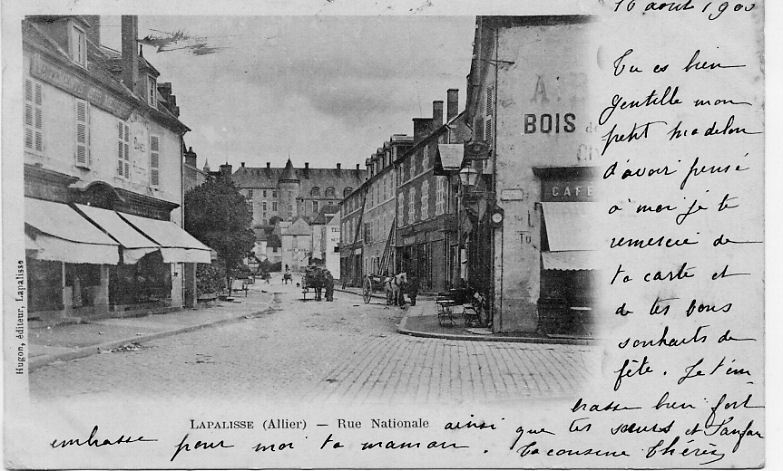 16 août 1900
Tu es bien
gentille mon
petit Madelon
d'avoir pensé
à moi je te
remercie de
ta carte et
de tes bons
souhaits de
fête. Je t'em
brasse bien fort
ainsi que tes sœurs et
embrasse pour moi ta maman. Ta cousine Thérèse
BOIS
CAFÉ
Hugon, éditeur, Lapalisse
LAPALISSE (Allier) — Rue Nationale